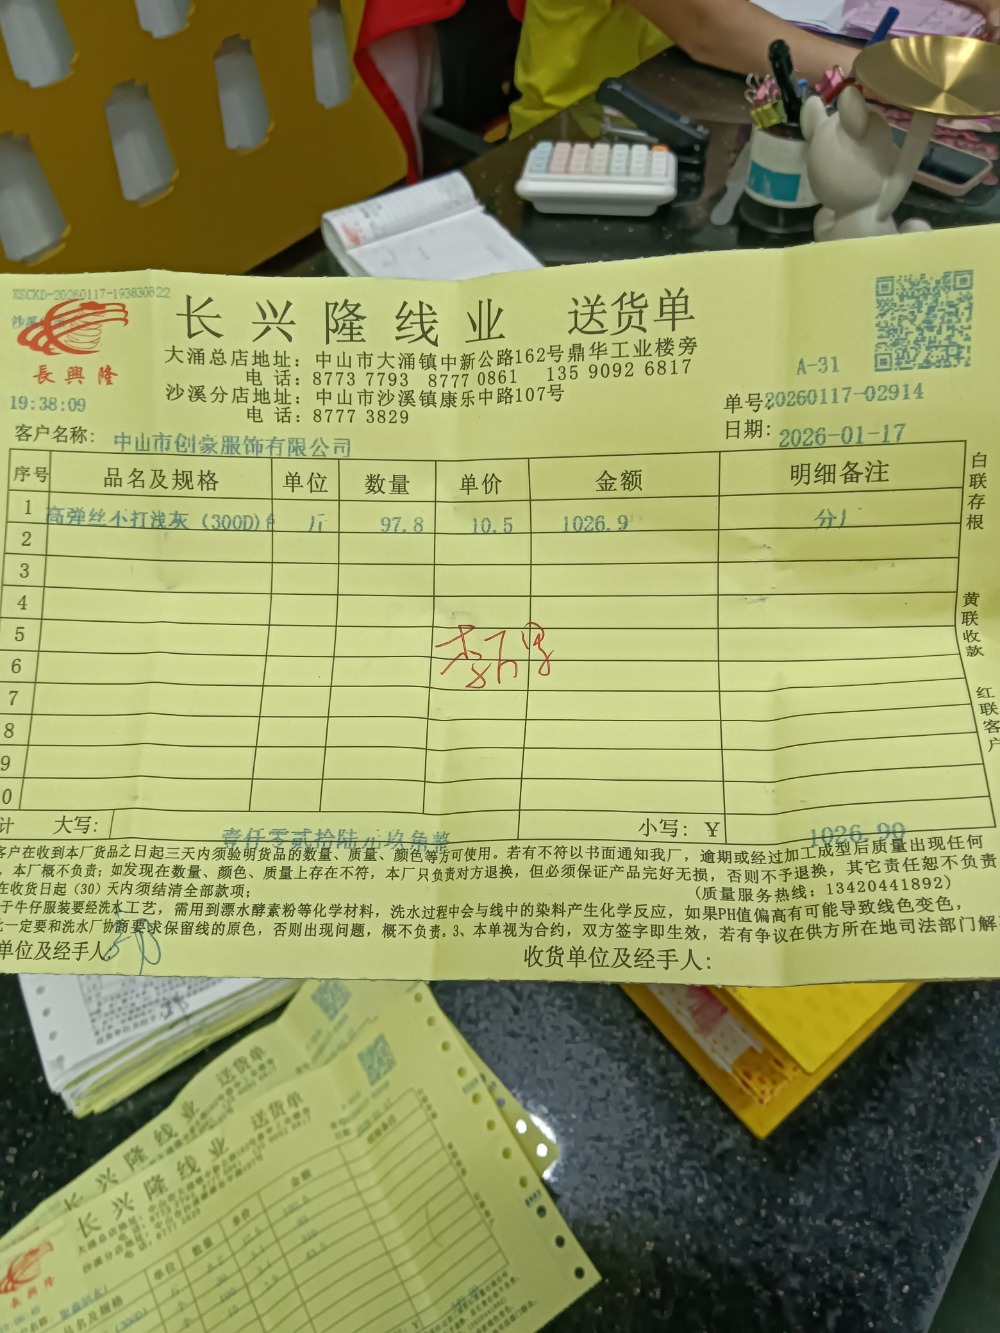 XSCKD-20260117-193830822
長興隆
19:38:09
长兴隆线业 送货单
大涌总店地址：中山市大涌镇中新公路162号鼎华工业楼旁
电 话：8773 7793 8777 0861 135 9092 6817
沙溪分店地址：中山市沙溪镇康乐中路107号
电 话：8777 3829
A-31
单号:20260117-02914
日期: 2026-01-17
客户名称: 中山市创豪服饰有限公司
序号 品名及规格 单位 数量 单价 金额 明细备注
1 高弹丝小打浅灰 (300D) 斤 97.8 10.5 1026.9
2
3
4
5
6
7
8
9
0
计 大写: 壹仟零贰拾陆元玖角整 小写: ￥ 1026.90
客户在收到本厂货品之日起三天内须验明货品的数量、质量、颜色等方可使用。若有不符以书面通知我厂，逾期或经过加工成型后质量出现任何
，本厂概不负责；如发现在数量、颜色、质量上存在不符，本厂只负责对方退换，但必须保证产品完好无损，否则不予退换，其它责任恕不负责
在收货日起（30）天内须结清全部款项；
(质量服务热线: 13420441892)
于牛仔服装要经洗水工艺，需用到漂水酵素粉等化学材料，洗水过程中会与线中的染料产生化学反应，如果PH值偏高有可能导致线色变色，
一定要和洗水厂协商要求保留线的原色，否则出现问题，概不负责。3、本单视为合约，双方签字即生效，若有争议在供方所在地司法部门解
单位及经手人:
收货单位及经手人:
白联存根
黄联收款
红联客户
送货单
长兴隆线业 送货单
長興隆
品名及规格 单位 数量 单价 金额